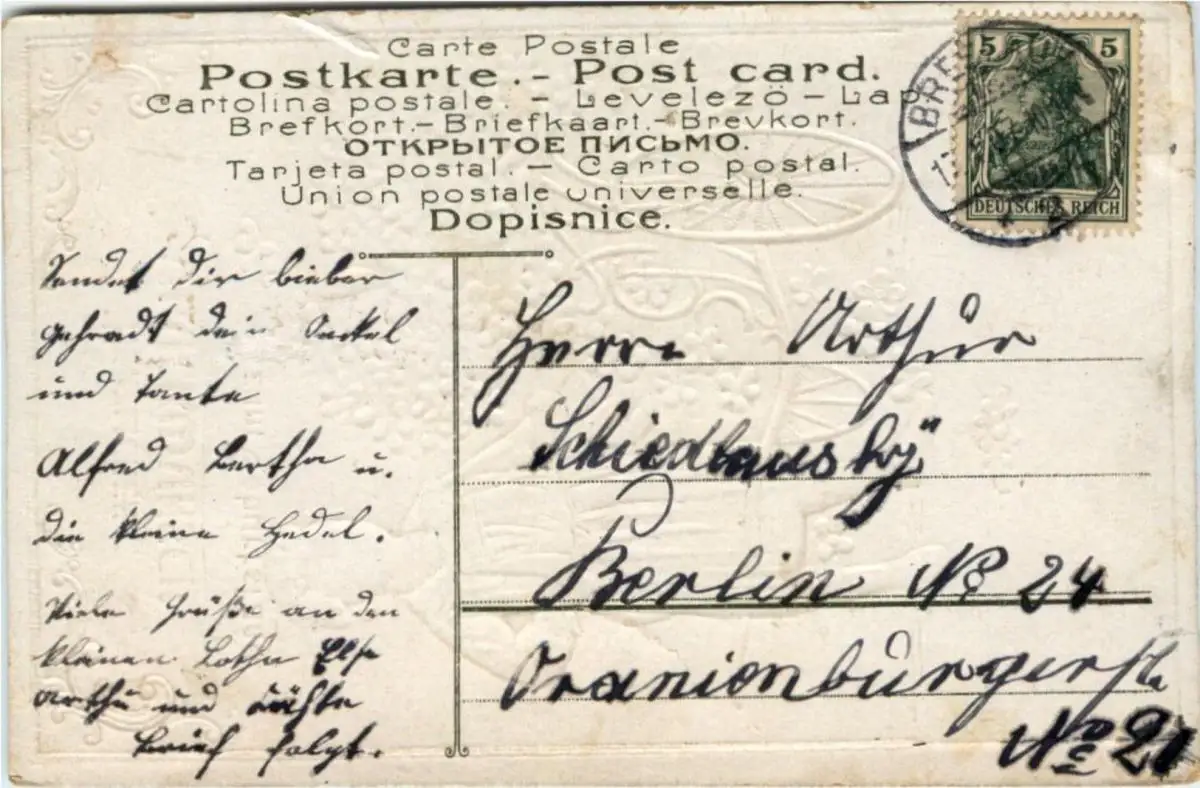 Carte Postale
Postkarte.- Post card.
Cartolina postale. - Levelezö-Lap
Brefkort.-Briefkaart.-Brevkort.
ОТКРЫТОЕ ПИСЬМО.
Tarjeta postal. - Carto postal.
Union postale universelle.
Dopisnice.
5 5
DEUTSCHES REICH
BRES
Sendet dir lieber
dein Onkel
und Tante
Alfred Bertha u.
die kleine Hedel.
Viele Grüße an den
kleinen Lotha Else
Arthu und Käthe
Brief folgt.
Herrn Arthur
Schiedlausky
Berlin No 24
Oranienburgerstr
No 21